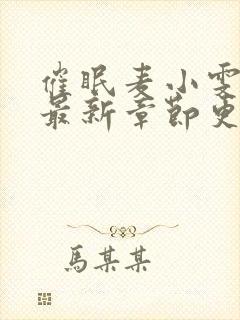 催眠麦小雯
最新章节更
馬某某